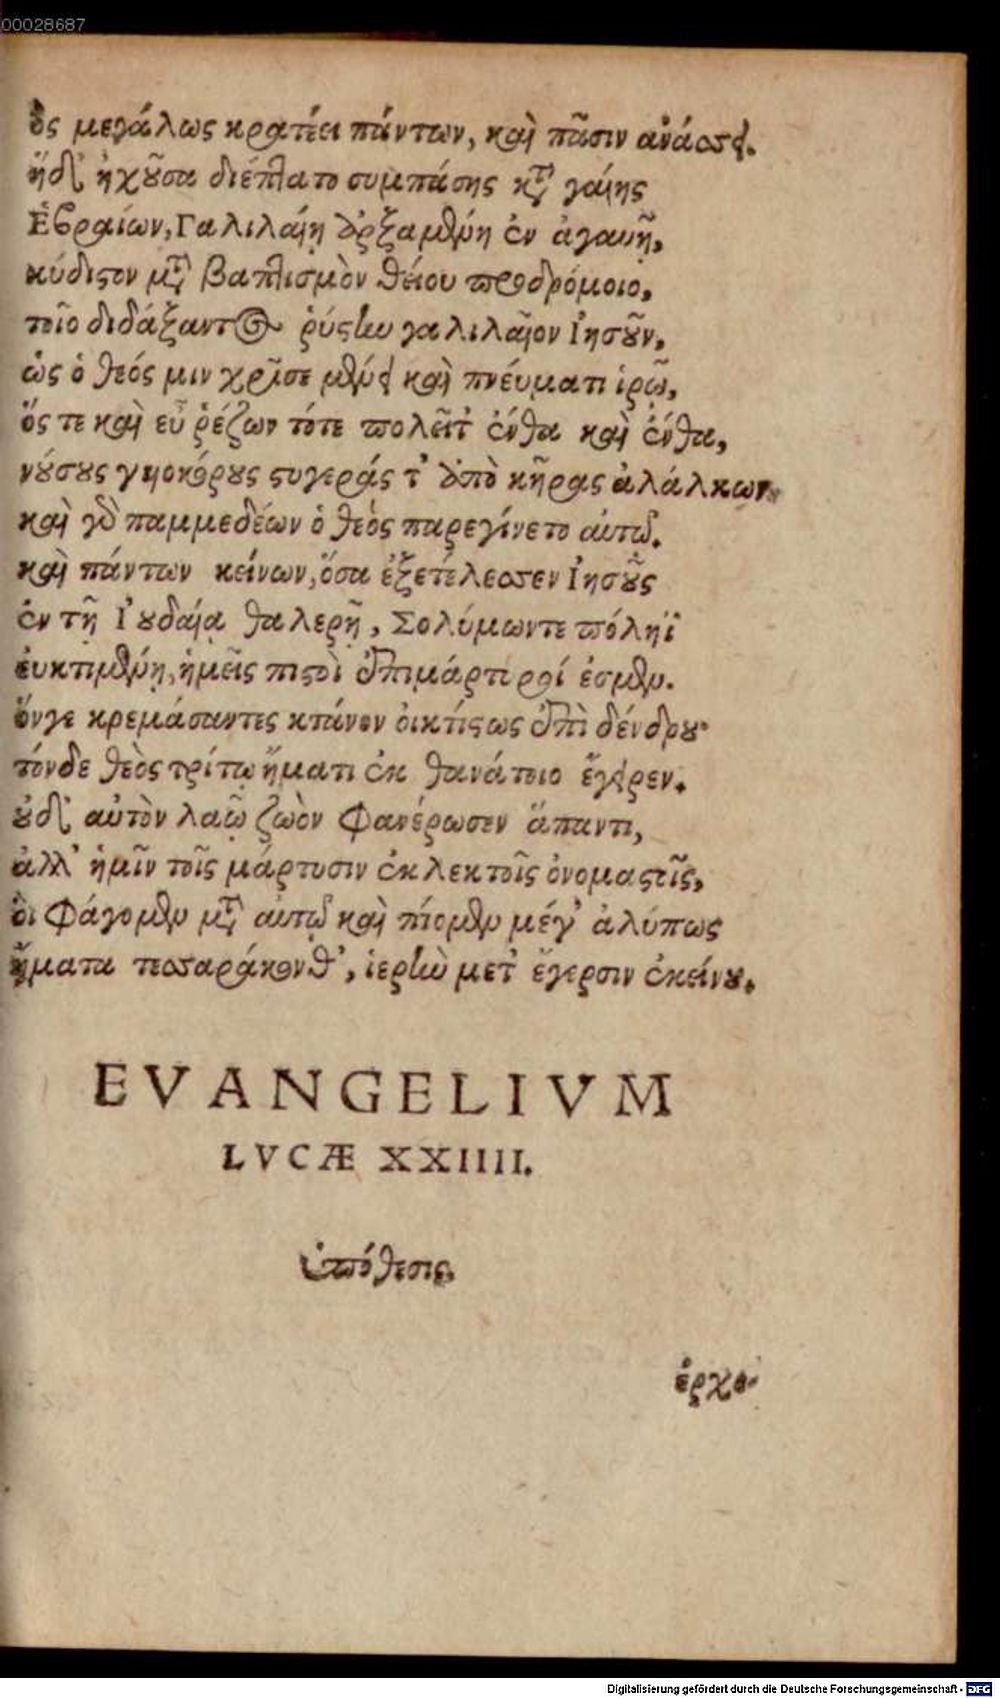 00028687
ὃς μεγάλως κρατέει πάντων, καὶ πᾶσιν ἀνάσσει.
ἥδ' ἠχοῦσα διέπτατο συμπάσης κατὰ γαίης
Ἑβραίων, Γαλιλαίῃ ἀρξαμένη ἐν ἀγαυῇ,
κύδιστον μετὰ βαπτισμὸν θείου προδρόμοιο,
τοῖο διδάξαντος ῥύστην γαλιλαῖον Ἰησοῦν,
ὡς ὁ θεός μιν χρῖσε μένει καὶ πνεύματι ἱρῷ,
ὅς τε καὶ εὖ ῥέζων τότε πολεῖτ' ἔνθα καὶ ἔνθα,
νούσους γυιοκόρους στυγεράς τ' ἀπὸ κῆρας ἀλάλκων
καὶ γὰρ παμμεδέων ὁ θεὸς παρεγίνετο αὐτῷ.
καὶ πάντων κείνων, ὅσα ἐξετέλεσσεν Ἰησοῦς
ἐν τῇ Ἰουδαίᾳ θαλερῇ, Σολύμωντε πόληϊ
ἐυκτιμένῃ, ἡμεῖς πιστοὶ ἐπιμάρτυροί ἐσμεν.
ὅνγε κρεμάσαντες κτάνον οἰκτίστως ἐπὶ δένδρου·
τόνδε θεὸς τρίτῳ ἤματι ἐκ θανάτοιο ἔγειρεν.
οὐδ' αὐτὸν λαῷ ζωὸν φανέρωσεν ἅπαντι,
ἀλλ' ἡμῖν τοῖς μάρτυσιν ἐκλεκτοῖς ὀνομαστοῖς,
οἳ φάγομεν μετ' αὐτοῦ καὶ πίομεν μέγ' ἀλύπως
ἤματα τεσσαράκονθ', ἱερὴν μετ' ἔγερσιν ἐκείνου.
EVANGELIVM
LVCÆ XXIIII.
ὑπόθεσις.
ἐρχο-
Digitalisierung gefördert durch die Deutsche Forschungsgemeinschaft - DFG